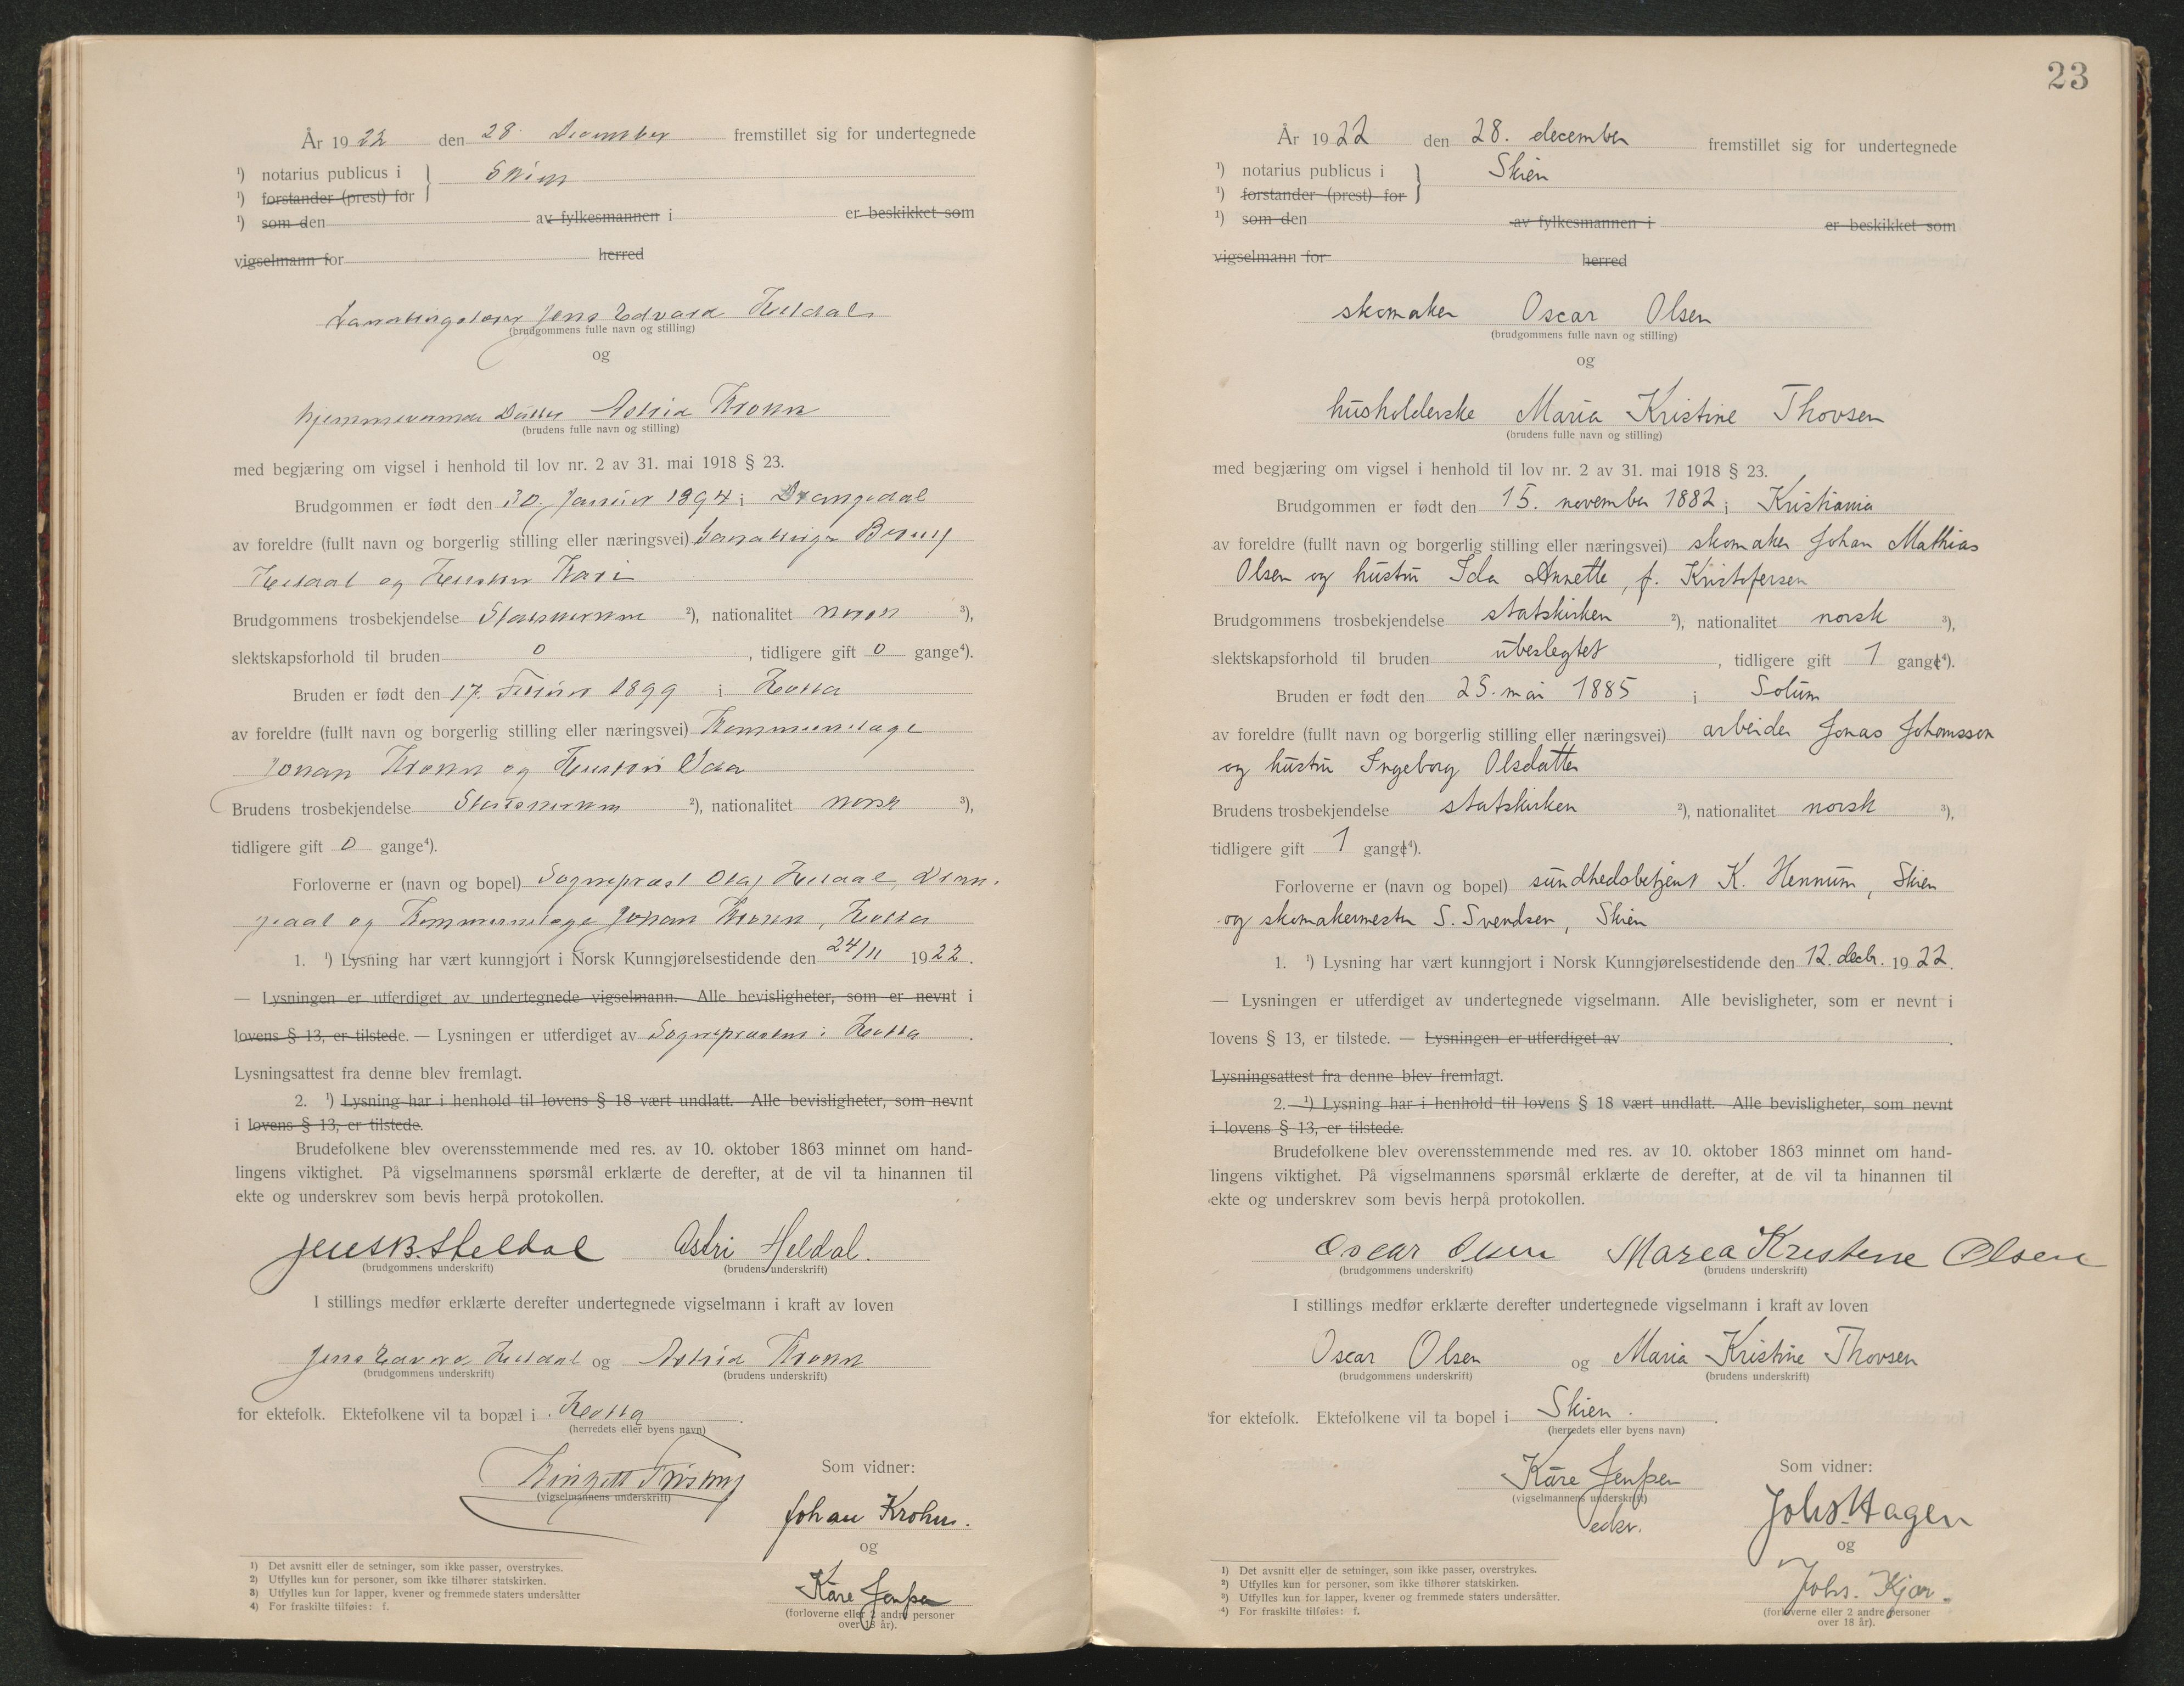 År 1922 den 28. December fremstillet sig for undertegnede
¹) notarius publicus i } Skien
¹) forstander (prest) for
¹) som den av fylkesmannen i er beskikket som
vigselmann for herred
Jens Edvard Heldal
(brudgommens fulle navn og stilling)
og
hjemmeværende Datter Astrid Krohn
(brudens fulle navn og stilling)
med begjæring om vigsel i henhold til lov nr. 2 av 31. mai 1918 § 23.
Brudgommen er født den 30. Januar 1894 i Drangedal
av foreldre (fullt navn og borgerlig stilling eller næringsvei)
Heldal og Hustru Kari
Brudgommens trosbekjendelse Statskirken ²), nationalitet norsk ³),
slektskapsforhold til bruden 0, tidligere gift 0 gange⁴).
Bruden er født den 17. Februar 1899 i
av foreldre (fullt navn og borgerlig stilling eller næringsvei) Kommunelæge
Johan Krohn og Hustru Ida
Brudens trosbekjendelse Statskirken ²), nationalitet norsk ³),
tidligere gift 0 gange⁴).
Forloverne er (navn og bopel) Sogneprest Olaf Heldal, Dran-
gedal og Kommunelæge Johan Krohn,
1. ¹) Lysning har vært kunngjort i Norsk Kunngjørelsestidende den 24/11 1922.
— Lysningen er utferdiget av undertegnede vigselmann. Alle bevisligheter, som er nevnt i
lovens § 13, er tilstede. — Lysningen er utferdiget av Sognepresten i
Lysningsattest fra denne blev fremlagt.
2. ¹) Lysning har i henhold til lovens § 18 vært undlatt. Alle bevisligheter, som nevnt
i lovens § 13, er tilstede.
Brudefolkene blev overensstemmende med res. av 10. oktober 1863 minnet om hand-
lingens viktighet. På vigselmannens spørsmål erklærte de derefter, at de vil ta hinannen til
ekte og underskrev som bevis herpå protokollen.
Jens B. Heldal Astri Heldal.
(brudgommens underskrift) (brudens underskrift)
I stillings medfør erklærte derefter undertegnede vigselmann i kraft av loven
Jens Edvard Heldal og Astrid Krohn
(brudgommens underskrift) (brudens underskrift)
for ektefolk. Ektefolkene vil ta bopæl i
(herredets eller byens navn)
Som vidner:
(vigselmannens underskrift)
Johan Krohn.
og
Kåre Jenssen
(forloverne eller 2 andre personer
over 18 år).
¹) Det avsnitt eller de setninger, som ikke passer, overstrykes.
²) Utfylles kun for personer, som ikke tilhører statskirken.
³) Utfylles kun for lapper, kvener og fremmede staters undersåtter
⁴) For fraskilte tilføies: f.
23
År 1922 den 28. december fremstillet sig for undertegnede
¹) notarius publicus i } Skien
¹) forstander (prest) for
¹) som den av fylkesmannen i er beskikket som
vigselmann for herred
skomaker Oscar Olsen
(brudgommens fulle navn og stilling)
og
husholderske Maria Kristine Thovsen
(brudens fulle navn og stilling)
med begjæring om vigsel i henhold til lov nr. 2 av 31. mai 1918 § 23.
Brudgommen er født den 15. november 1882 i Kristiania
av foreldre (fullt navn og borgerlig stilling eller næringsvei) skomaker Johan Mathias
Olsen og hustru Ida Annette, f. Kristofersen
Brudgommens trosbekjendelse statskirken ²), nationalitet norsk ³),
slektskapsforhold til bruden ubeslegtet, tidligere gift 1 gang⁴).
Bruden er født den 25. mai 1885 i Solum
av foreldre (fullt navn og borgerlig stilling eller næringsvei) arbeider Jonas Johanssen
og hustru Ingeborg Olsdatter
Brudens trosbekjendelse statskirken ²), nationalitet norsk ³),
tidligere gift 1 gang⁴).
Forloverne er (navn og bopel) sundhedsbetjent K. Hennum, Skien
og skomakermester S. Svendsen, Skien
1. ¹) Lysning har vært kunngjort i Norsk Kunngjørelsestidende den 12. decbr. 1922.
— Lysningen er utferdiget av undertegnede vigselmann. Alle bevisligheter, som er nevnt i
lovens § 13, er tilstede. — Lysningen er utferdiget av
Lysningsattest fra denne blev fremlagt.
2. ¹) Lysning har i henhold til lovens § 18 vært undlatt. Alle bevisligheter, som nevnt
i lovens § 13, er tilstede.
Brudefolkene blev overensstemmende med res. av 10. oktober 1863 minnet om hand-
lingens viktighet. På vigselmannens spørsmål erklærte de derefter, at de vil ta hinannen til
ekte og underskrev som bevis herpå protokollen.
Oscar Olsen Marea Kristene Olsen
(brudgommens underskrift) (brudens underskrift)
I stillings medfør erklærte derefter undertegnede vigselmann i kraft av loven
Oscar Olsen og Maria Kristine Thovsen
(brudgommens underskrift) (brudens underskrift)
for ektefolk. Ektefolkene vil ta bopel i Skien.
(herredets eller byens navn)
Kåre Jenssen Som vidner:
(vigselmannens underskrift)
sekr.
Johs. Hagen
og
Johs. Kjær.
(forloverne eller 2 andre personer
over 18 år).
¹) Det avsnitt eller de setninger, som ikke passer, overstrykes.
²) Utfylles kun for personer, som ikke tilhører statskirken.
³) Utfylles kun for lapper, kvener og fremmede staters undersåtter.
⁴) For fraskilte tilføies: f.